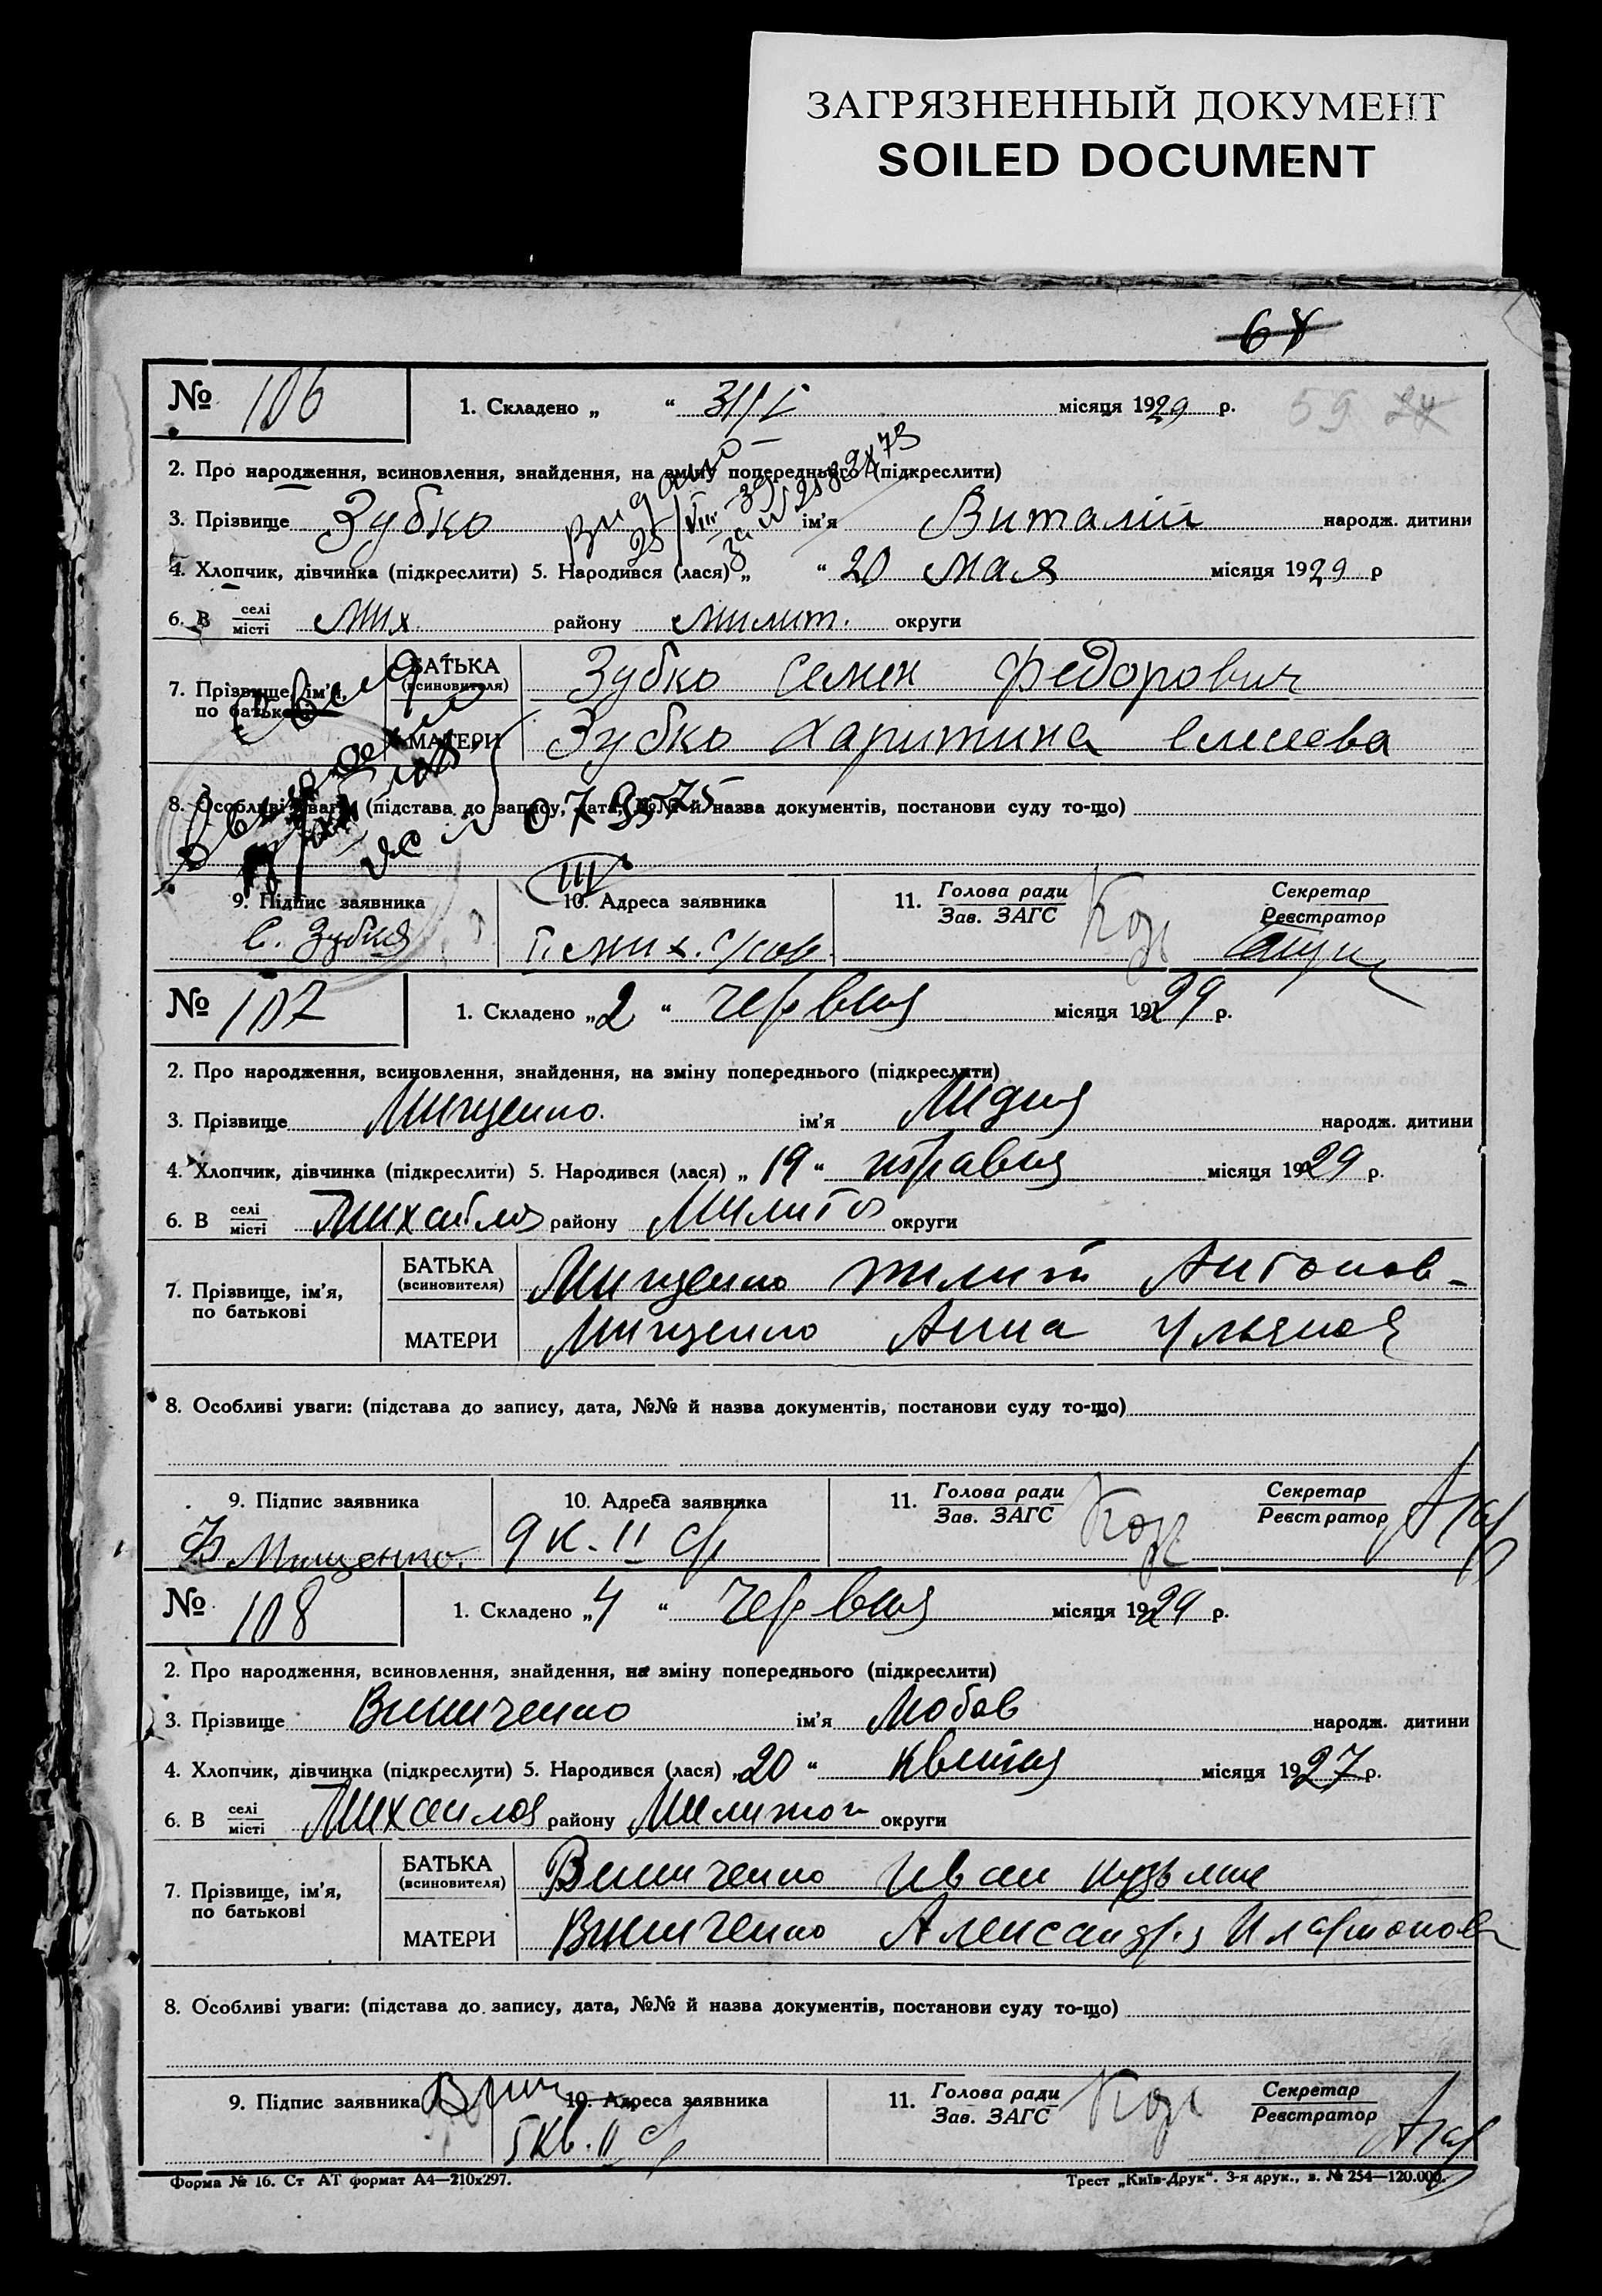 ЗАГРЯЗНЕННЫЙ ДОКУМЕНТ
SOILED DOCUMENT
№ 106 1. Складено „ “ 31/V місяця 1929 р. 59
2. Про народження, всиновлення, знайдення, на зміну попереднього (підкреслити)
3. Прізвище Зубко ім'я Виталий народж. дитини
4. Хлопчик, дівчинка (підкреслити) 5. Народився (лася) „ “ 20 мая місяця 1929 р
6. В селі місті Мих. району Милит. округи
7. Прізвище, ім'я, по батькові БАТЬКА (всиновителя) Зубко Семен Федорович
МАТЕРИ Зубко Харитина Елисеева
8. Особливі уваги: (підстава до запису, дата, №№ й назва документів, постанови суду то-що)
9. Підпис заявника 10. Адреса заявника 11. Голова ради Зав. ЗАГС Секретар Реєстратор
С. Зубко
№ 107 1. Складено „2 “ червня місяця 1929 р.
2. Про народження, всиновлення, знайдення, на зміну попереднього (підкреслити)
3. Прізвище Мищенко ім'я Лидия народж. дитини
4. Хлопчик, дівчинка (підкреслити) 5. Народився (лася) „ 19 “ травня місяця 1929 р.
6. В селі місті Михайлов району Мелито округи
7. Прізвище, ім'я, по батькові БАТЬКА (всиновителя) Мищенко Антонов-
МАТЕРИ Мищенко Анна Ульяно
8. Особливі уваги: (підстава до запису, дата, №№ й назва документів, постанови суду то-що)
9. Підпис заявника 10. Адреса заявника 11. Голова ради Зав. ЗАГС Секретар Реєстратор
Мищенко. 9 к. II с/р
№ 108 1. Складено „4 “ червня місяця 1929 р.
2. Про народження, всиновлення, знайдення, на зміну попереднього (підкреслити)
3. Прізвище Винниченко ім'я Любов народж. дитини
4. Хлопчик, дівчинка (підкреслити) 5. Народився (лася) „20 “ квітня місяця 1927 р.
6. В селі місті Михайлов району Мелитоп округи
7. Прізвище, ім'я, по батькові БАТЬКА (всиновителя) Винниченко Иван Кузьмич
МАТЕРИ Винниченко Александра Иларионова
8. Особливі уваги: (підстава до запису, дата, №№ й назва документів, постанови суду то-що)
9. Підпис заявника 10. Адреса заявника 11. Голова ради Зав. ЗАГС Секретар Реєстратор
5 кв. II с/р
Форма № 16. Ст АТ формат А4—210х297. Трест „Київ-Друк“. 3-я друк., з. № 254—120.000.